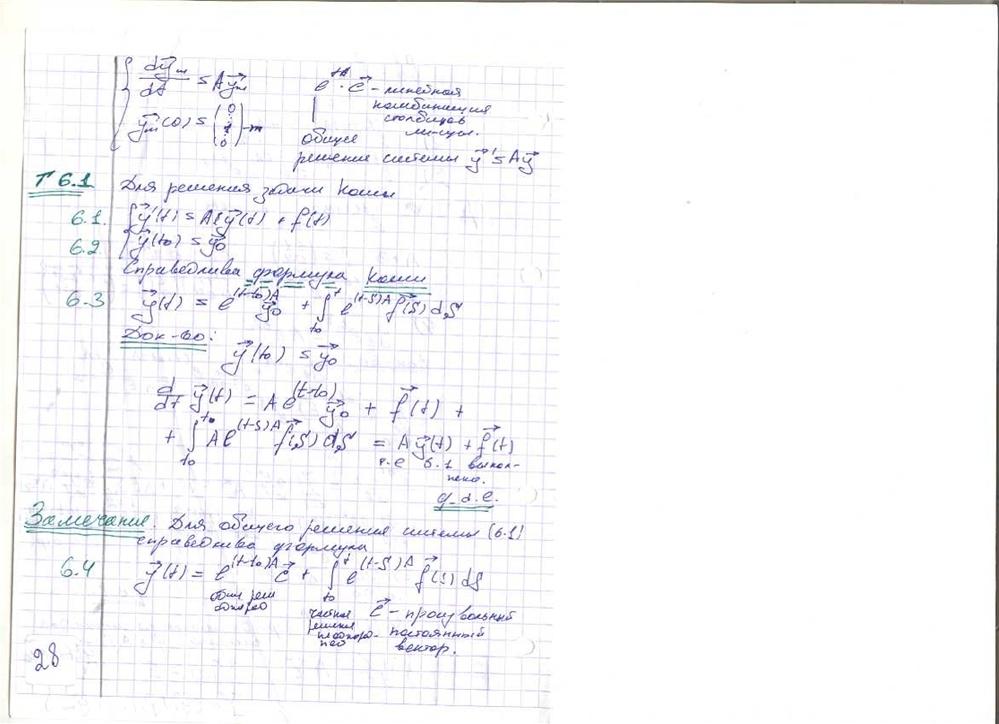 dy⃗m/dt = Ay⃗m e^{tA}·c⃗ – линейная
комбинация
y⃗m(0) = (0 ⋮ 1 ⋮ 0) – m столбцов
м-цы.
общее
решение системы y⃗' = Ay⃗
Т 6.1 Для решения задачи Коши
6.1. { y⃗'(t) = A y⃗(t) + f(t)
6.2 { y⃗(t0) = y⃗0
Справедлива формула Коши
6.3 y⃗(t) = e^{(t-t0)A} y⃗0 + ∫_{t0}^{t} e^{(t-s)A} f⃗(s) ds
Док-во:
y⃗(t0) = y⃗0
d/dt y⃗(t) = A e^{(t-t0)} y⃗0 + f⃗(t) +
+ ∫_{t0}^{t0} A e^{(t-s)A} f⃗(s) ds = A y⃗(t) + f⃗(t)
т.е 6.1 выпол-
нено.
q.d.e.
Замечание. Для общего решения системы (6.1)
справедлива формула
6.4 y⃗(t) = e^{(t-t0)A} c⃗ + ∫_{t0}^{t} e^{(t-s)A} f⃗(s) ds
общ реш
частное
решение
неоднород-
ной
c⃗ – произвольный
постоянный
вектор.
28